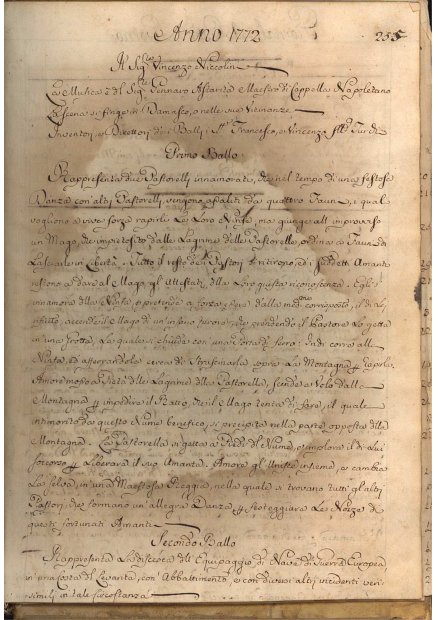 Anno 1772
255
Al Sig.r Vincenzo Niccolini
La Musica è del Sig.r Gennaro Astarita Maestro di Cappella Napoletano
La Scena si finge in Damasco, o nelle sue Vicinanze
Inventori, e Direttori de i Balli S.ri Francesco, e Vincenzo Turchi
Primo Ballo
Rappresenta due Pastorelli innamorati, che nel tempo di una festosa
Danza con altri Pastorelli vengono assaliti da quattro Fauni, i quali
vogliono a viva forza rapirle Le Loro Ninfe, ma giunge all'improvviso
un Mago, che impietosito dalle Lagrime delle Pastorelle, ordina ai Fauni di
Lasciare in Libertà. Tutto il resto de Pastori si ritirano, ed i suddetti Amanti
restono a dare al Mago gli Attestati della Loro giusta riconoscenza. Egli s'
innamora della Ninfa, e pretende a forza esser dalla med.ma corrisposto, il di Lei
rifiuto, accende il Mago di un'insano furore, che prendendo il Pastore Lo getta
in una Grotta, La quale si chiude con una Porta di ferro: indi corre alla
Ninfa, ed afferrandola cerca di Strascinarla sopra La Montagna p rapirla.
Amore mosso a Pietà delle Lagrime della Pastorella, scende a Volo dalla
Montagna p impedire il Ratto, che il Mago tenta di fare, il quale
intimorito da questo Nume benefico, si precipita nella parte opposta della
Montagna. La Pastorella si getta ai Piedi del Nume, ed implora il di Lui
soccorso p Liberare il suo Amante. Amore gli Unisce insieme, e cambia
La Selva, in una Maestosa Reggia, nella quale si trovano tutti gli altri
Pastori che formano un'allegra Danza p festeggiare Le Nozze di
questi fortunati Amanti
Secondo Ballo
Rappresenta La discesa dell'Equipaggio di Nave di Guerra Europea
in una Costa del Levante, con Abbattimento, e con diversi altri incidenti veri-
simili in tale circostanza